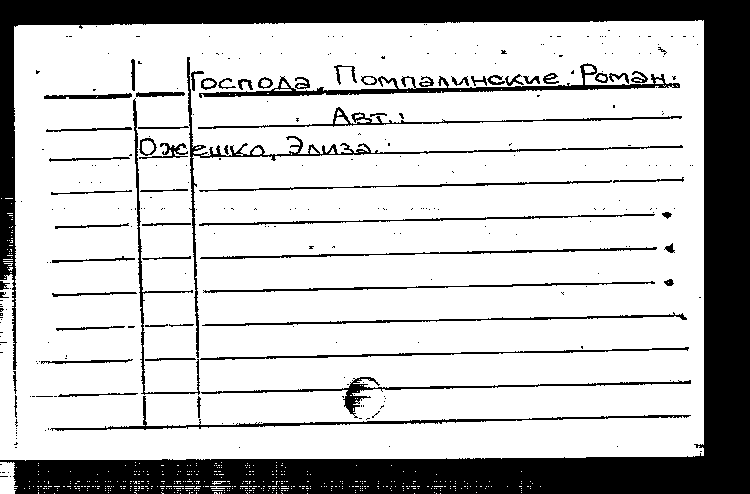 Господа Помпалинские: Роман.
Авт.:
Ожешко, Элиза.